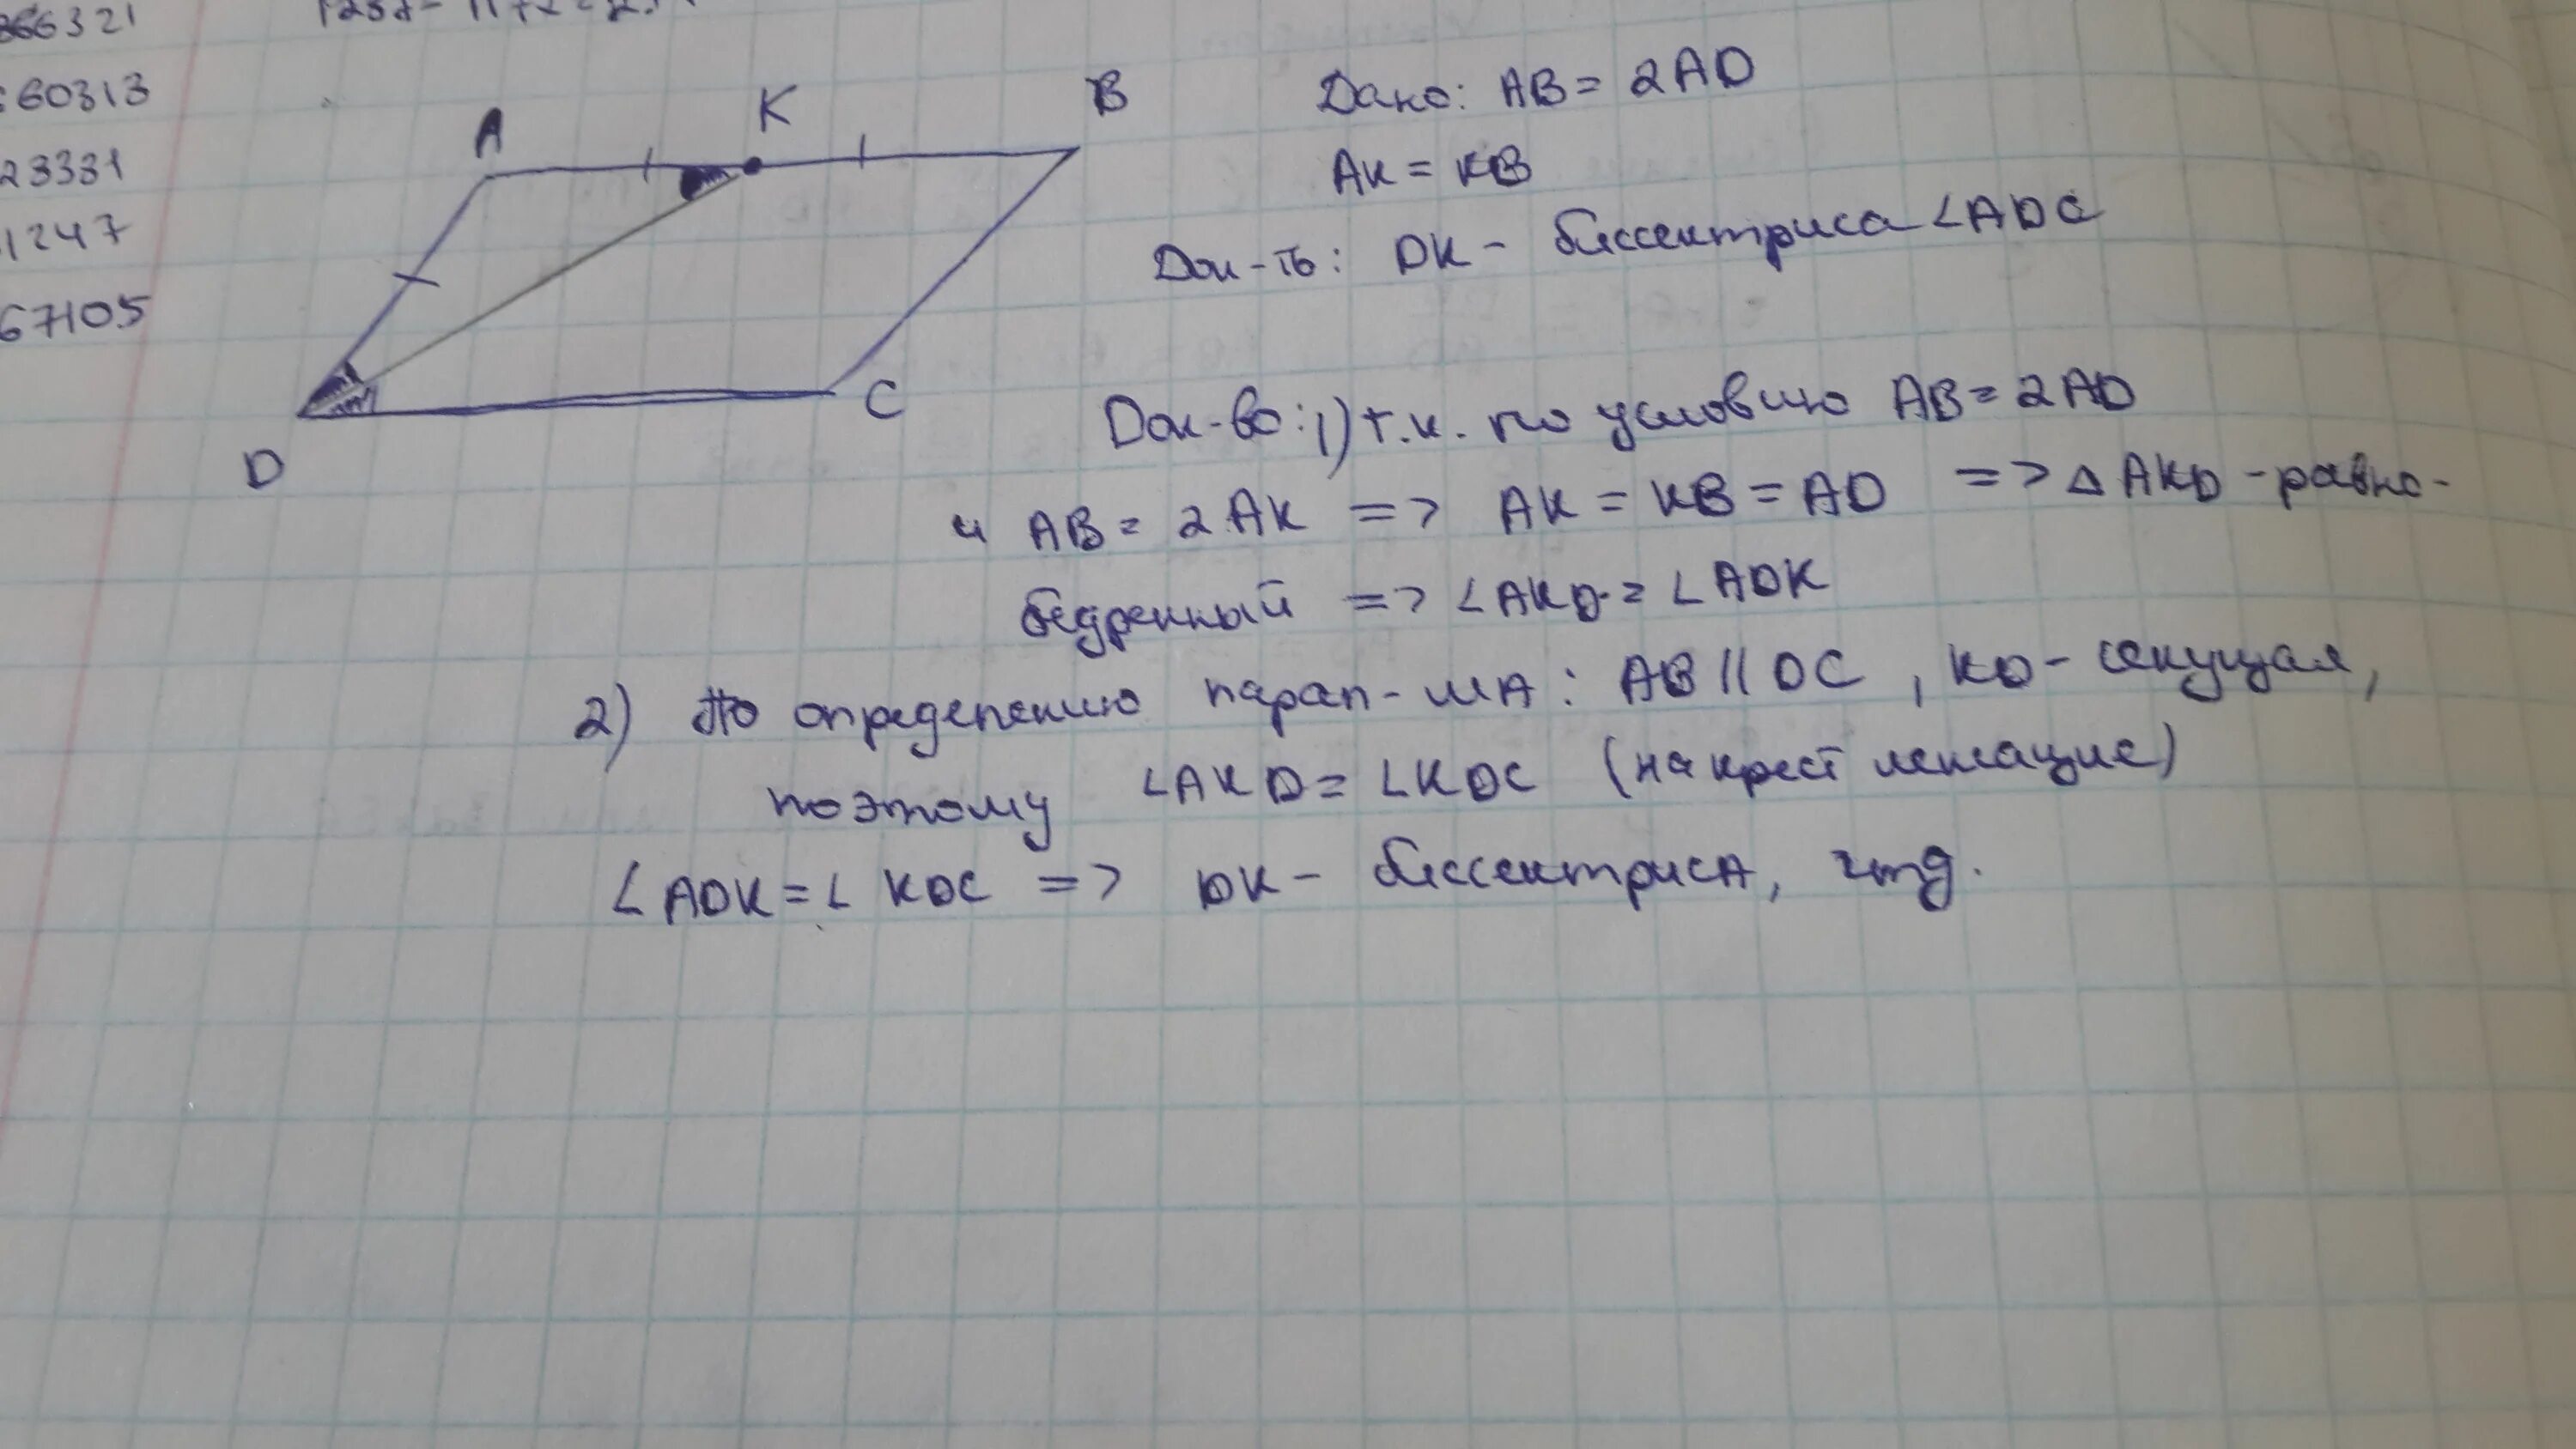 366321
60313
23331
1247
67105
A
K
B
D
C
Дано: AB = 2AD
AK = KB
Док-ть: DK - биссектриса ∠ADC
Док-во: 1) т.к. по условию AB = 2AD
и AB = 2AK => AK = KB = AD => △ AKD - равно-
бедренный => ∠AKD = ∠ADK
2) По определению парал-ма: AB || DC, KD - секущая,
поэтому ∠AKD = ∠KDC (накрест лежащие)
∠ADK = ∠KDC => DK - биссектриса, чтд.